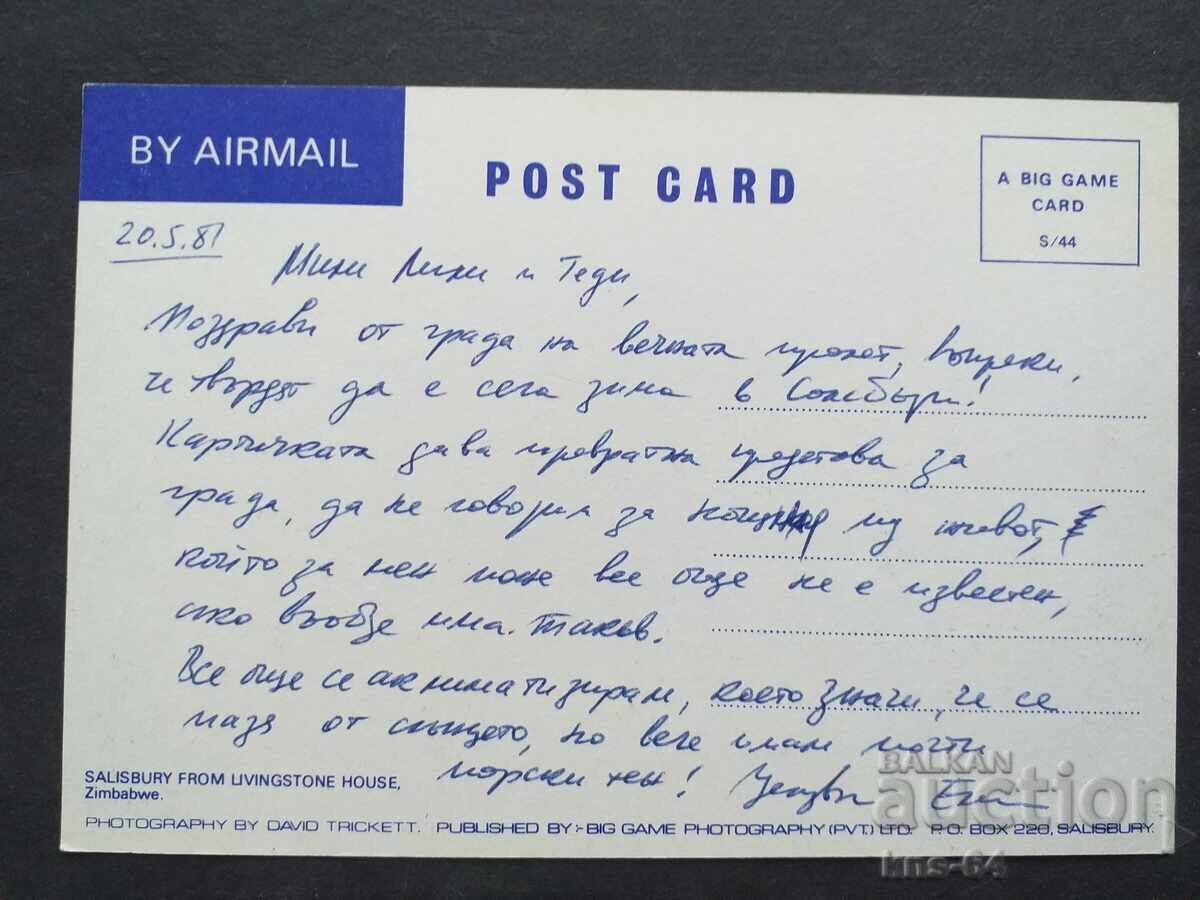 BY AIRMAIL
POST CARD
A BIG GAME
CARD
S/44
20.5.81
Мили Лили и Теди,
Поздрави от града на вечната пролет, въпреки,
че твърдят да е сега зима в Солсбъри!
Картичката дава превратна представа за
града, да не говорим за нощния му живот,
който за мен поне все още не е известен,
ако въобще има такъв.
Все още се аклиматизирам, което значи, че се
пазя от слънцето, но вече имам почти
морски тен!
SALISBURY FROM LIVINGSTONE HOUSE,
Zimbabwe.
PHOTOGRAPHY BY DAVID TRICKETT. PUBLISHED BY:-BIG GAME PHOTOGRAPHY (PVT) LTD. P.O. BOX 220, SALISBURY.
BALKAN
auction
kns-64